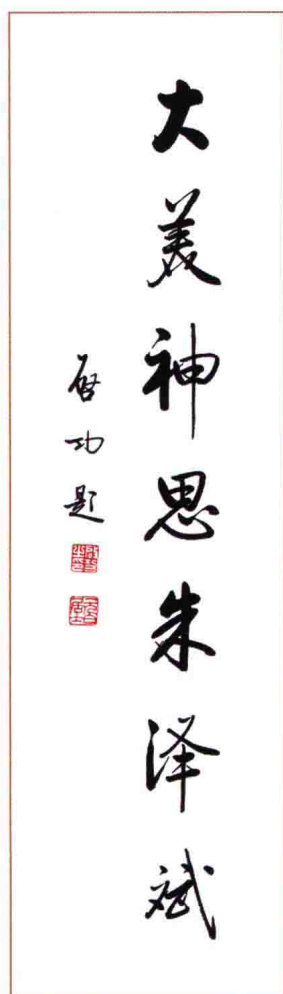 大美神思朱泽斌
启功题